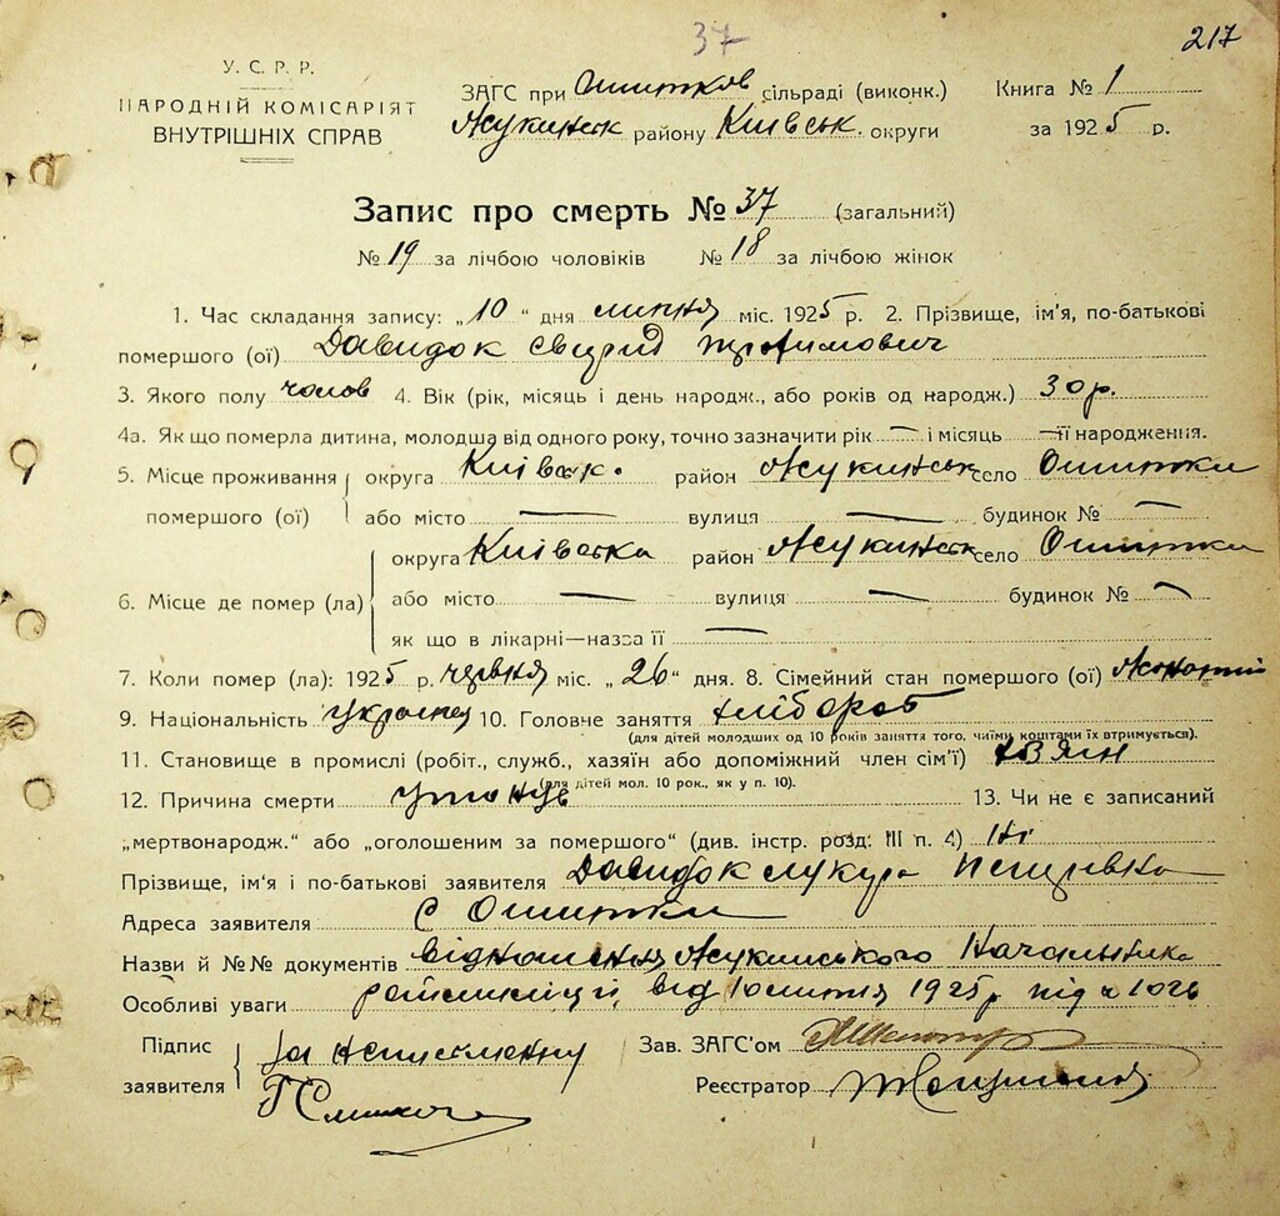 37
217
У. С. Р. Р.
НАРОДНІЙ КОМІСАРІЯТ
ВНУТРІШНІХ СПРАВ
ЗАГС при Ошитков сільраді (виконк.)
Жукинськ району Київськ. округи
Книга № 1
за 1925 р.
Запис про смерть № 37 (загальний)
№ 19 за лічбою чоловіків № 18 за лічбою жінок
1. Час складання запису: „10“ дня липня міс. 1925 р. 2. Прізвище, ім'я, по-батькові
помершого (ої) Давидок Свирид Трохимович
3. Якого полу чолов 4. Вік (рік, місяць і день народж., або років од народж.) 30 р.
4а. Як що померла дитина, молодша від одного року, точно зазначити рік — і місяць — її народження.
5. Місце проживання округа Київськ. район Жукинськ село Ошитки
помершого (ої) або місто — вулиця — будинок № —
округа Київська район Жукинськ село Ошитки
6. Місце де помер (ла) або місто — вулиця — будинок № —
як що в лікарні—назва її —
7. Коли помер (ла): 1925 р. червня міс. „26“ дня. 8. Сімейний стан помершого (ої) Жонатий
9. Національність україне 10. Головче заняття хлібороб
(для дітей молодших од 10 років заняття того, чиїми коштами їх втримується).
11. Становище в промислі (робіт., служб., хазяїн або допоміжний член сім'ї) хазяїн
(для дітей мол. 10 рок., як у п. 10).
12. Причина смерти утонув 13. Чи не є записаний
„мертвонародж.“ або „оголошеним за помершого“ (див. інстр. розд. III п. 4) Ні
Прізвище, ім'я і по-батькові заявителя Давидок
Адреса заявителя с Ошитки
Назви й №№ документів відношення Жукинського Начальника
Особливі уваги райміліції від 10 липня 1925 р під № 1026
Підпис
заявителя за неписьменну
Зав. ЗАГС'ом
Реєстратор